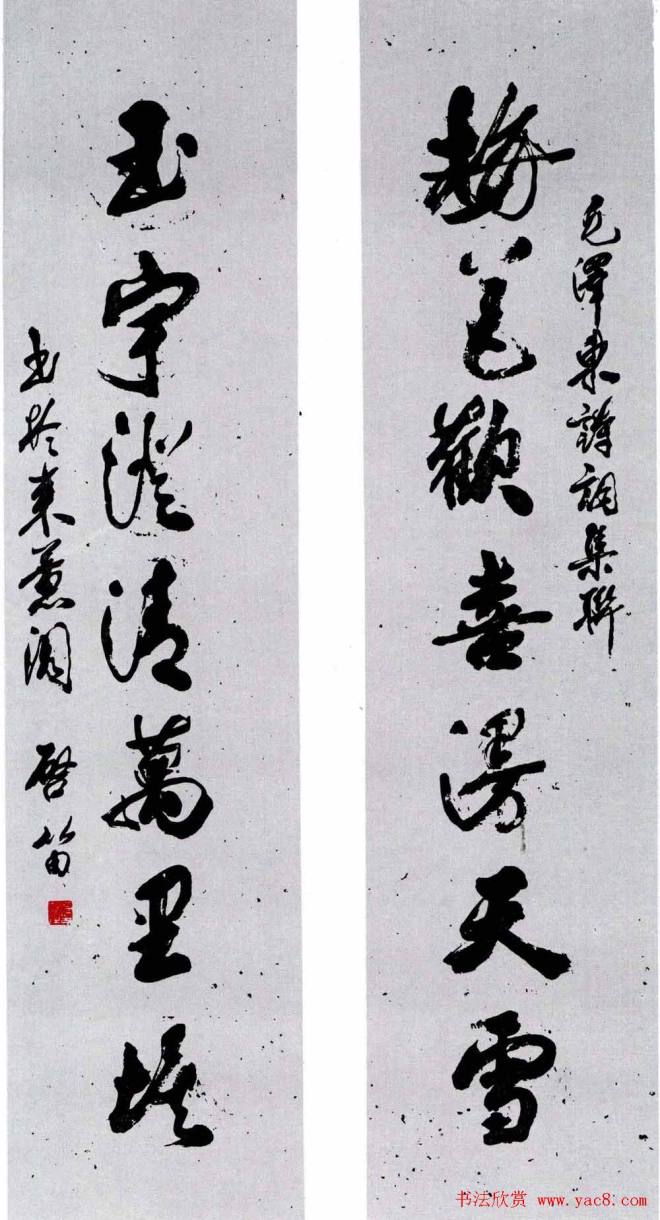 毛澤東詩詞集聯
梅花歡喜漫天雪
玉宇澄清萬里埃
书於東
启笛
书法欣赏 www.yac8.com